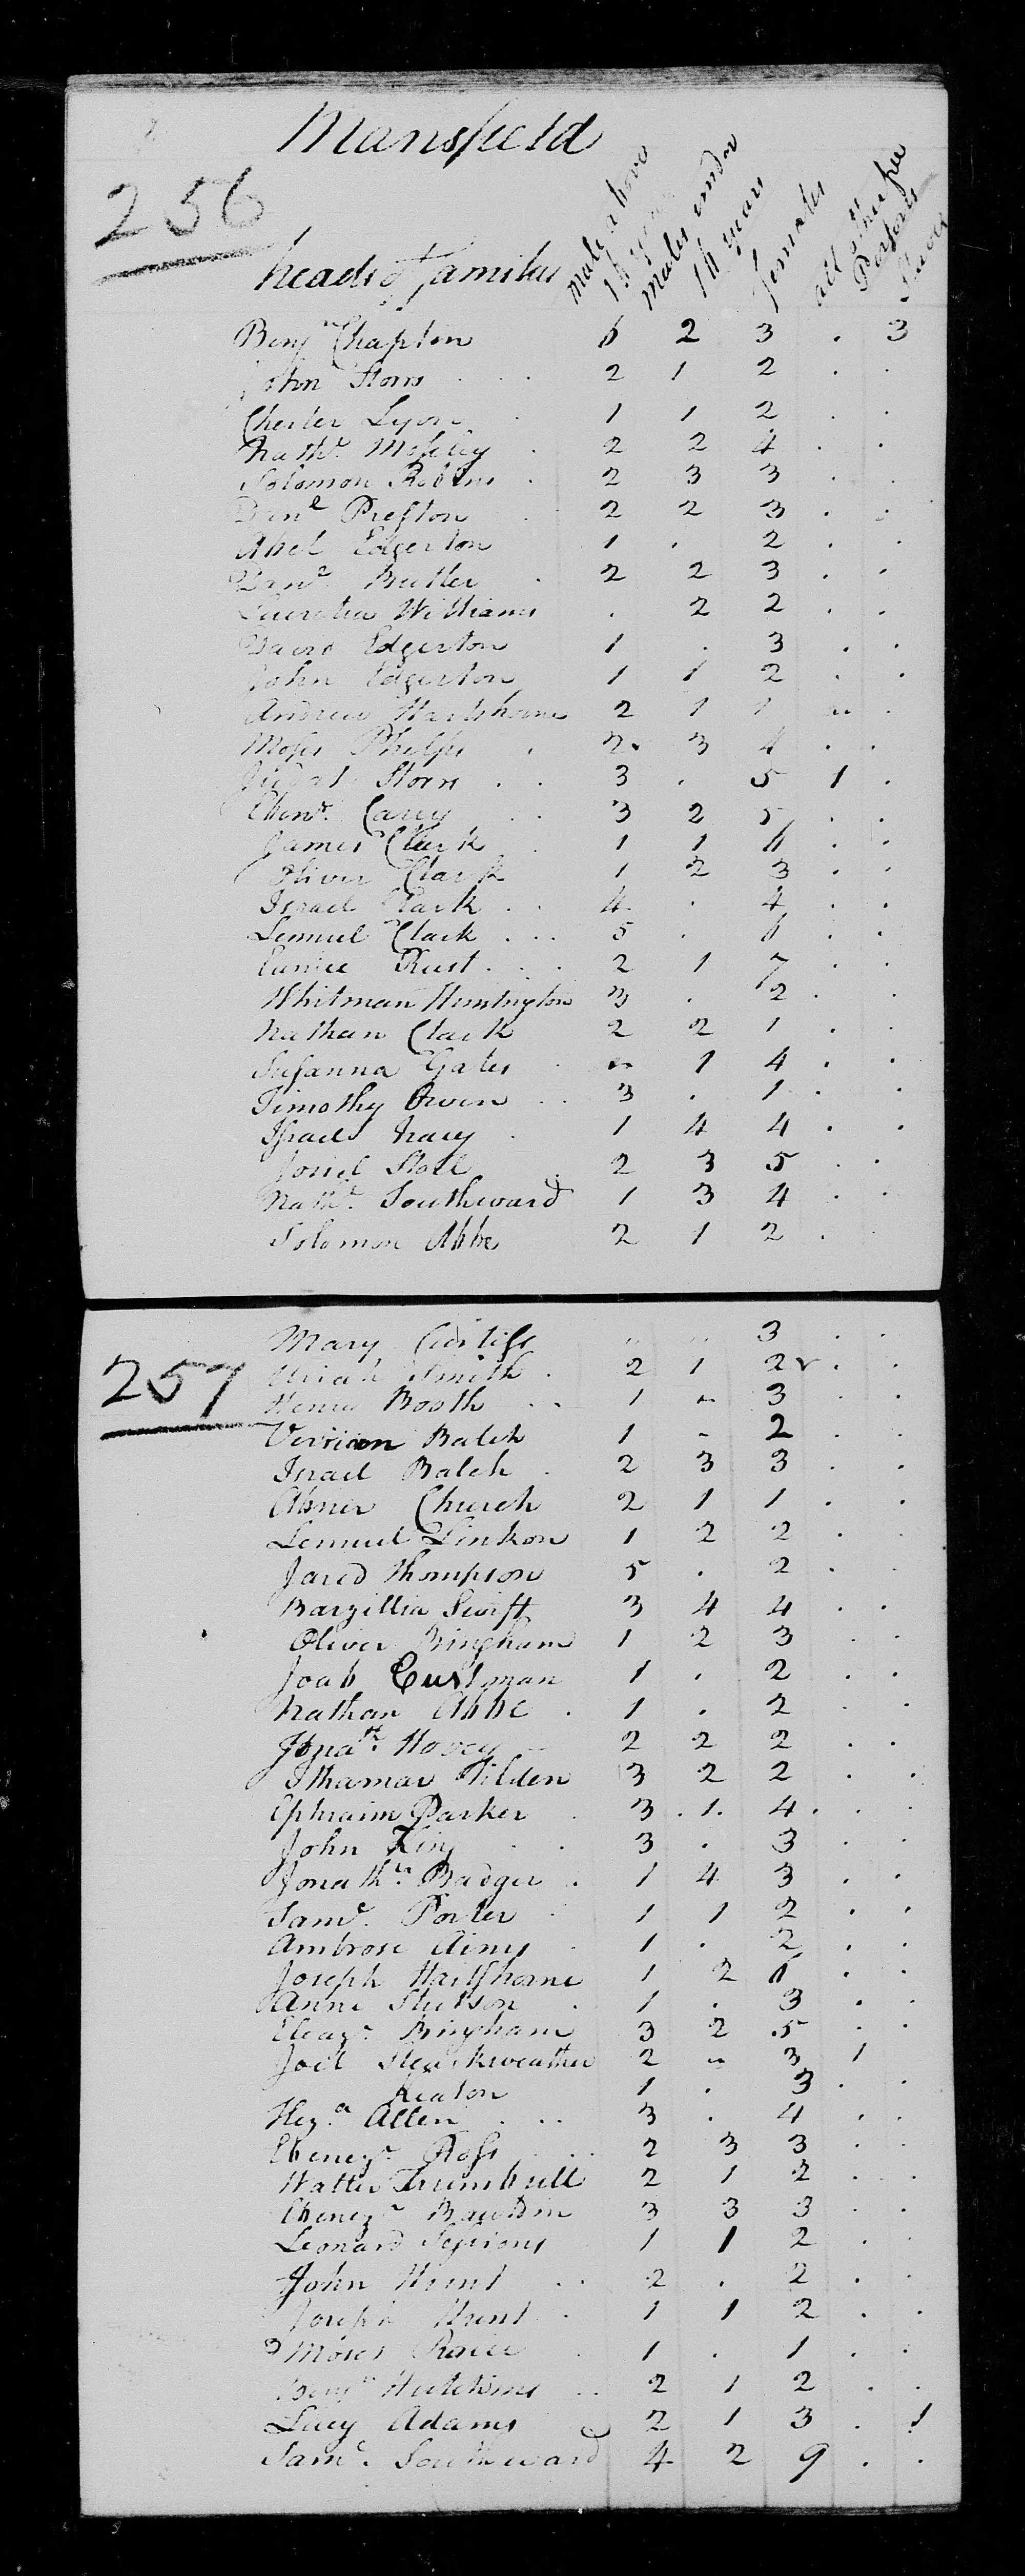 Mansfield
256
heads of families males above 16 years males under 16 years females all other free Persons Slaves
Benj.n Chaplon 6 2 3 . 3
John Storrs 2 1 2 . .
Chester Lyon 1 1 2 . .
Nath.l Moseley 2 2 4 . .
Solomon Robins 2 3 3 . .
Dan.l Preston 2 2 3 . .
Abel Edgerton 1 . 2 . .
Dan.l Butler 2 2 3 . .
Lucretia Williams . 2 2 . .
David Edgerton 1 . 3 . .
John Edgerton 1 1 2 . .
Andrew Hartshorne 2 1 1 " .
Moses Phelps 2 3 4 . .
Storrs 3 . 5 1 .
Eben.r Carey 3 2 5 . .
James Clark 1 1 6 . .
Oliver Clark 1 2 3 . .
Israel Clark 4 . 4 . .
Lemuel Clark 5 . 6 . .
Eunice Rust 2 1 7 . .
Whitman Huntington 3 . 2 . .
Nathan Clark 2 2 1 . .
Susanna Gates " 1 4 . .
Timothy Owen 3 . 1 . .
Israel Tracy 1 4 4 . .
2 3 5 . .
Nath.l Southward 1 3 4 . .
Solomon Abbe 2 1 2 .
257
Mary Curtiss " " 3 . .
Uriah Smith 2 1 2 . .
Henry Booth 1 " 3 . .
Balch 1 - 2 . .
Israel Balch 2 3 3 . .
Abner Church 2 1 1 . .
Lemuel Linkon 1 2 2 . .
Jared Thompson 5 . 2 . .
Barzillia Swift 3 4 4 . .
Oliver Bingham 1 2 3 . .
Joab Cushman 1 . 2 . .
Nathan Abbe 1 . 2 . .
Jona.th Hovey 2 2 2 . .
Ithamar Tilden 3 2 2 . .
Ephraim Parker 3 . 1 . 4 . . .
John King 3 . 3 . .
Jonath.n Badger 1 4 3 . .
Sam.l Porter 1 1 2 . .
Ambrose 1 . 2 . .
Joseph Hartshorne 1 2 6 . .
Anne Stutson 1 . 3 . .
Eleaz.r Bingham 3 2 5 . .
Joel Starkweather 2 " 3 1
Heaton 1 . 3 . .
Hez.a Allen 3 . 4 . .
Ebenez.r Ross 2 3 3 . .
Walter Trumbull 2 1 2 . .
Ebenez.r Bawldin 3 3 3 . .
Leonard Sessions 1 1 2 .
John Hunt 2 . 2 . .
Joseph Hunt 1 1 2 . .
Moses 1 . 1 . .
Benj.n Hutchins 2 1 2 . .
Lucy Adams 2 1 3 . 1
Sam.l Southward 4 2 9 . .